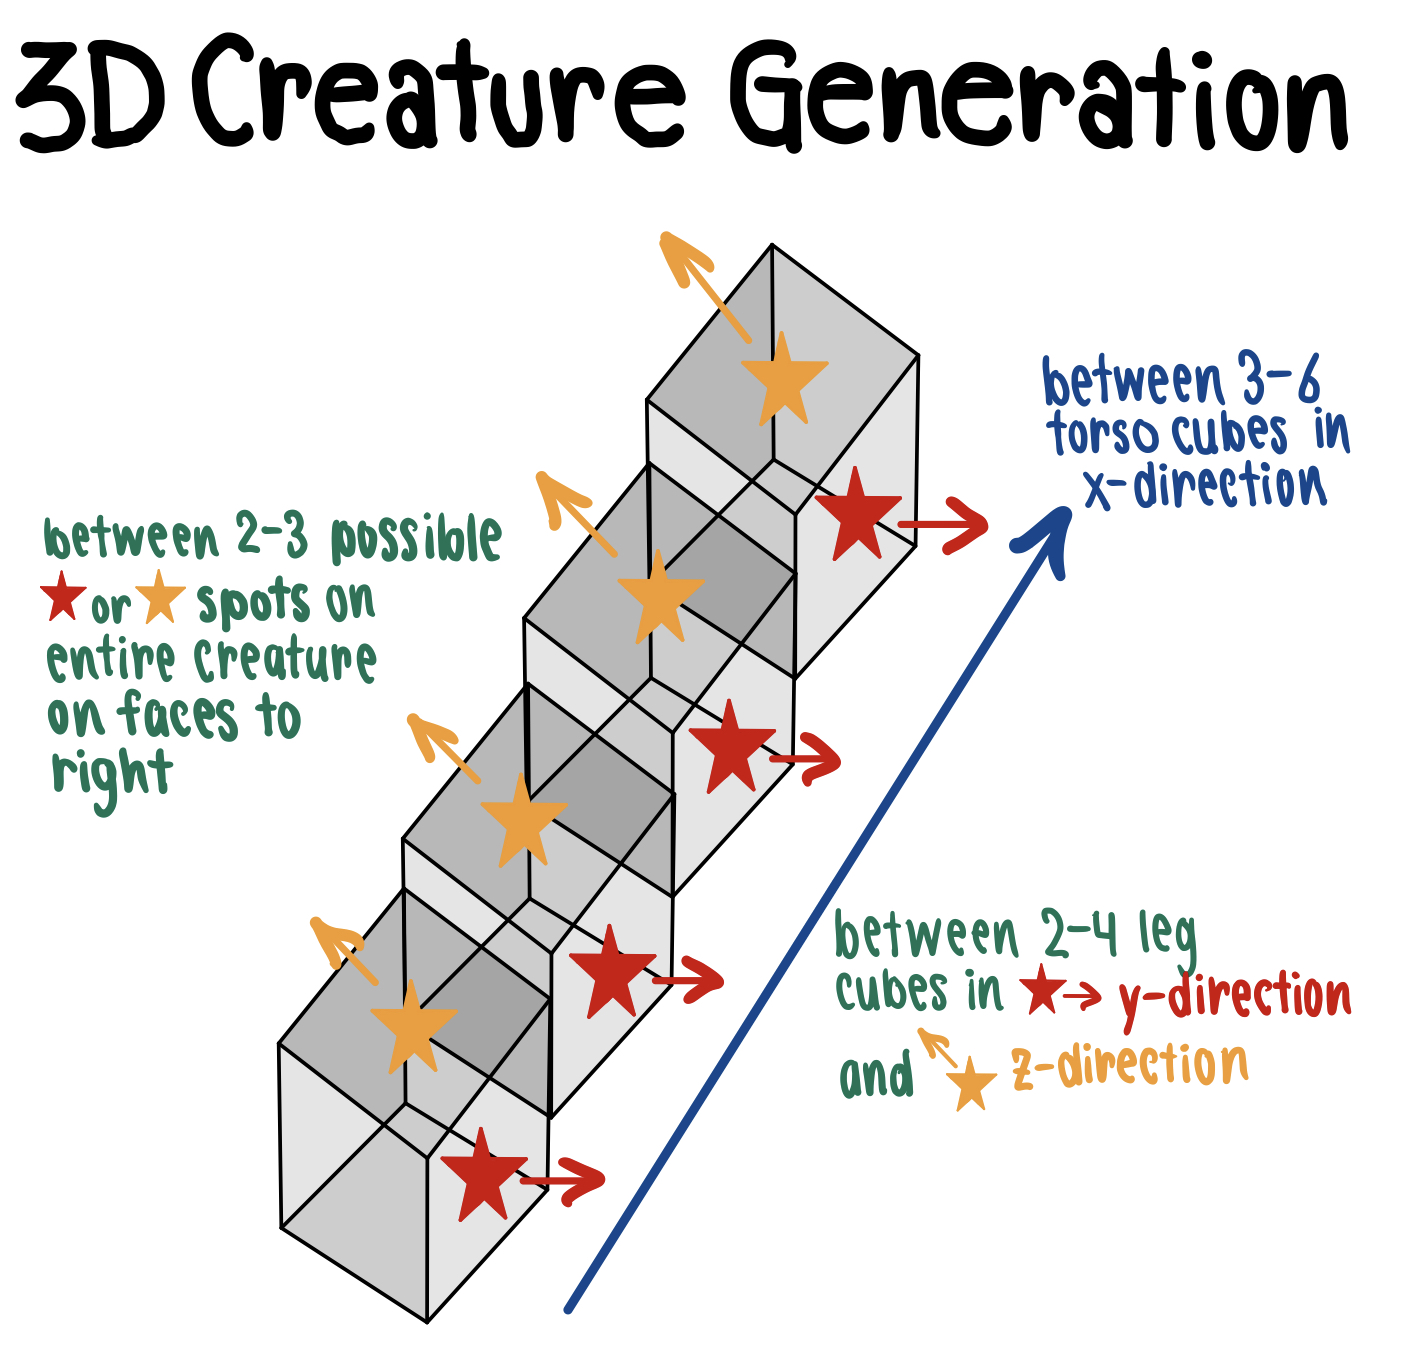 3D Creature Generation
between 3-6
torso cubes in
x-direction
between 2-3 possible
or spots on
entire creature
on faces to
right
between 2-4 leg
cubes in y-direction
and z-direction